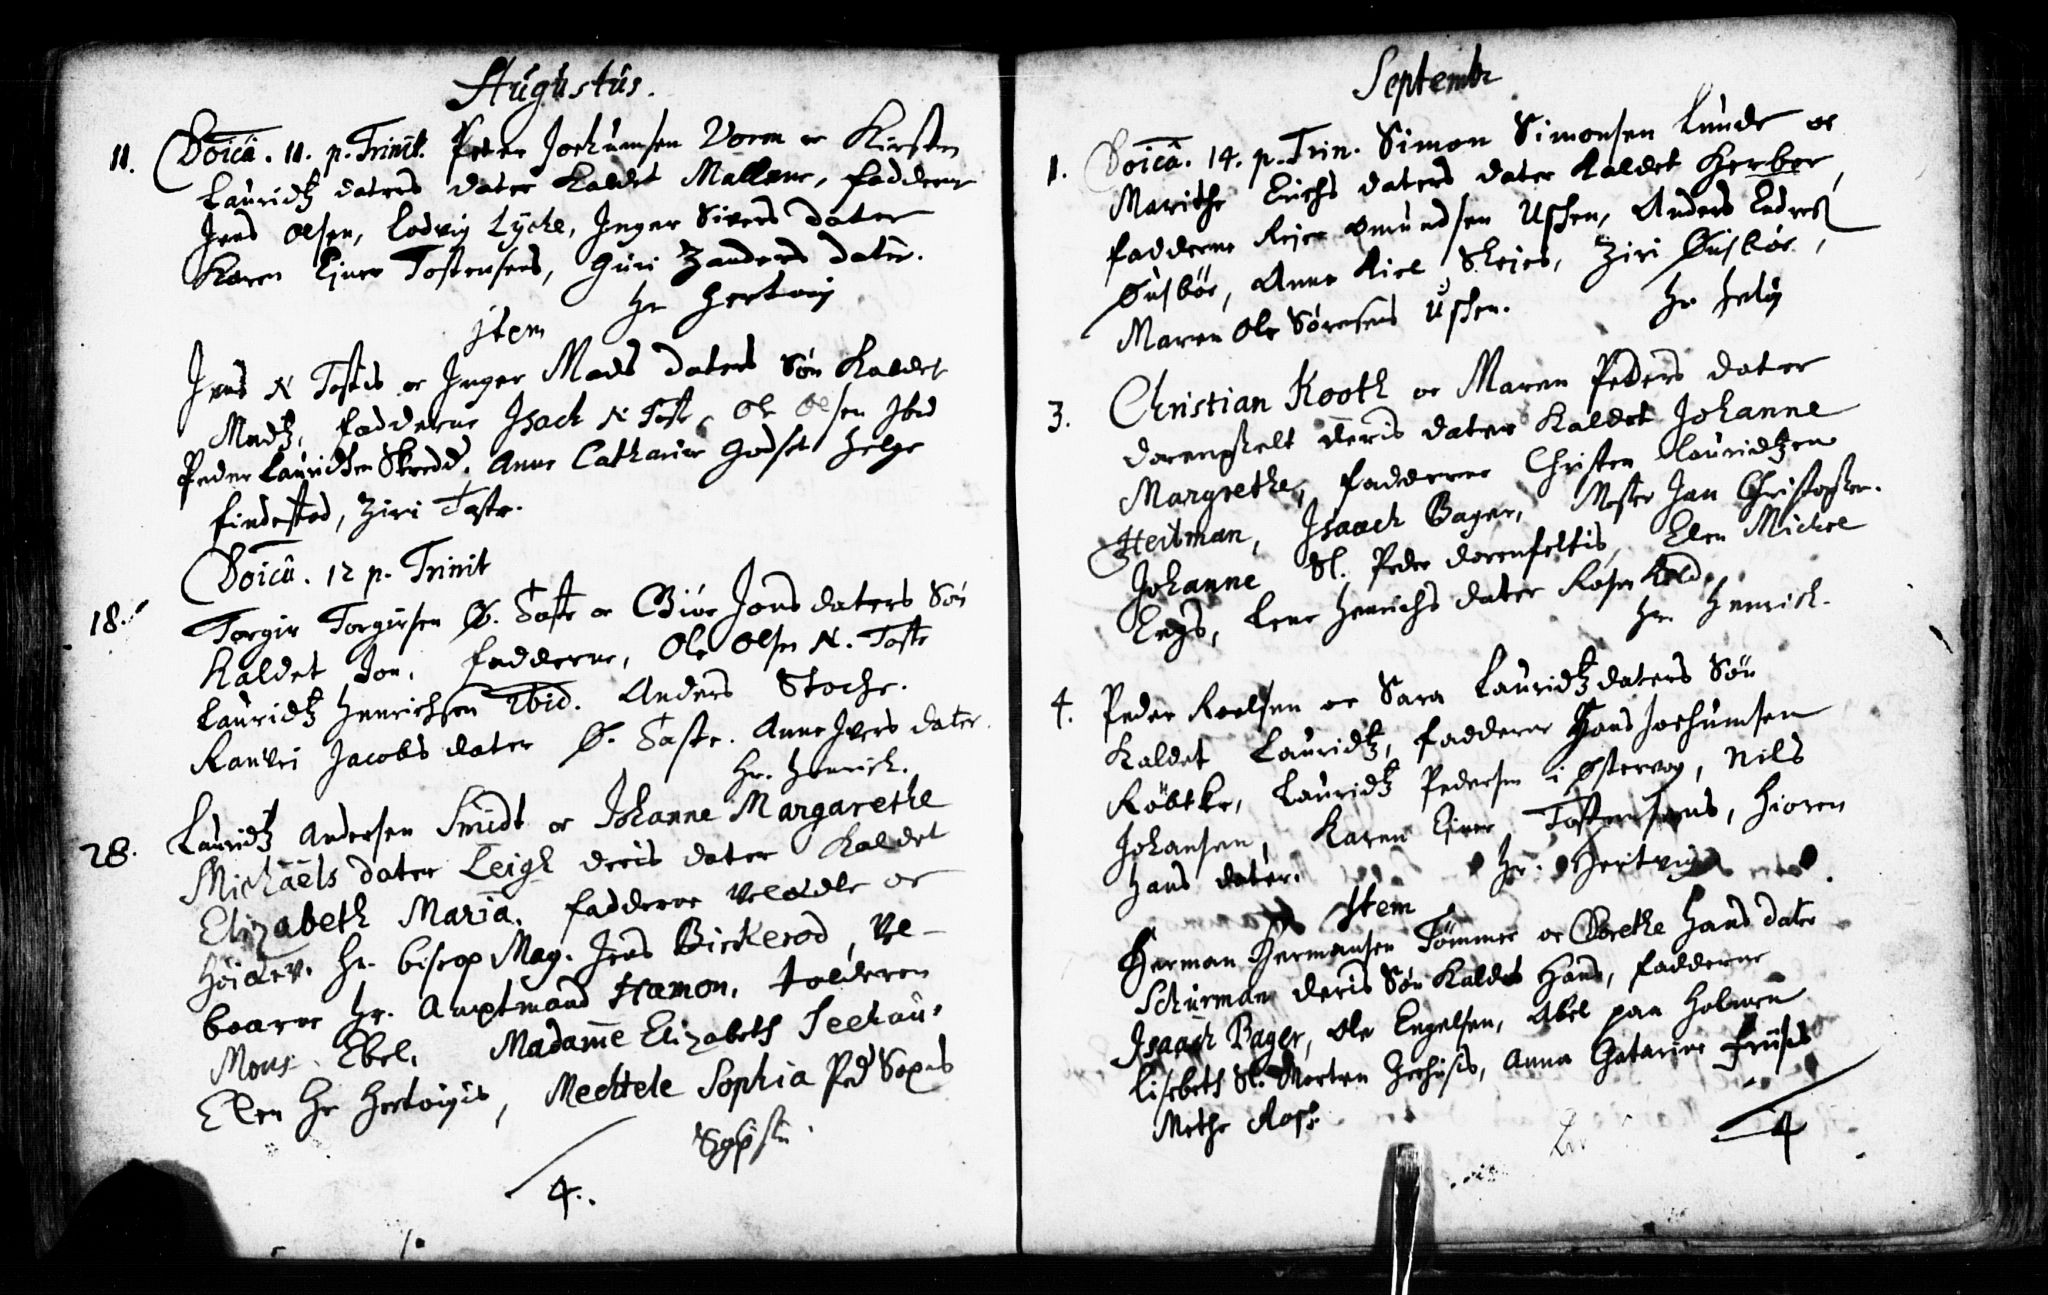 Augustus.
11. Doicâ. 11. p. Trinit. Peder Jochumsen Worm oc Kirsten
Lauridtz daters dater Kaldet Mallene, fadderne
Jens Olsen, Lodvig Lyche, Inger Sivers dater
Karen Ejner Tostensens, Guri Zanders dater.
Hr Hertvig
Item
Jens N Tasties oc Inger Mads daters Søn Kaldet
Madtz, fadderne Isach N Taste, Ole Olsen Ibid
Peder Lauridtsen Skredd. Anne Catharine Godset Helge
findestad, Ziri Taste.
Doicâ. 12 p. Trinit
18. Torgir Torgirsen Ø. Taste oc Giøe Jons daters Søn
Kaldet Jon. fadderne, Ole Olsen N. Taste
Lauridtz Henrichsen Ibid. Anders Stoche.
Ranvei Jacobs dater Ø. Taste. Anne Ivers dater.
Hr. Henrich.
28. Lauridtz Andersen Smidt oc Johanne Margarethe
Michaels dater Leigh deris dater Kaldet
Elizabeth Maria. fadderne Velædle oc
Høiærv. Hr. biscop Mag. Jens Bickerod, Vel-
baarne Hr. Amptmand Hamon. tolderen
Mons. Ebel. Madame Elizabeth Seehau.
Ellen Hr Hertvigis, Mechtele Sophia Ped
4.
Septembr
1. Doicâ. 14. p. Trin. Simon Simonsen Lunde oc
Marithe Erichs daters dater Kaldet Herber,
fadderne Reier Omundsen Ussen, Anders Endres
Øusbøe, Anne Kiel Skeies, Ziri Øusbøe,
Maren Ole Sørensens Ussen. Hr. Helvig
3. Christian Kooth oc Maren Peders dater
dorenfelt deris dater Kaldet Johanne
Margrethe, fadderne Christen Lauridtzen
Heitman, Isaach Bager, Mester Jan Christopher.
Johanne Sl. Peder dorenfeltis, Elen Michel
Leghs, Lene Henrichs dater Rosenkold,
Hr. Henrich.
4. Peder Roelsen oc Sara Lauridtz daters Søn
Kaldet Lauridtz, fadderne Hans Jochumsen
Röbtke, Lauridtz Pedersen i Østervog, Nils
Johansen, Karen Ejner Tostensens, Hioren
Hans dater. Hr. Hertvig
Item
Herman Hermansen Tømmer oc Dorethe Hans dater
Schurman deris Søn Kaldet Hans, fadderne
Isaach Bager, Ole Engelsen, Abel paa Holmen
Lisebeth Sl. Morten, Anna Catarine Friisis
Mette Ross.
4